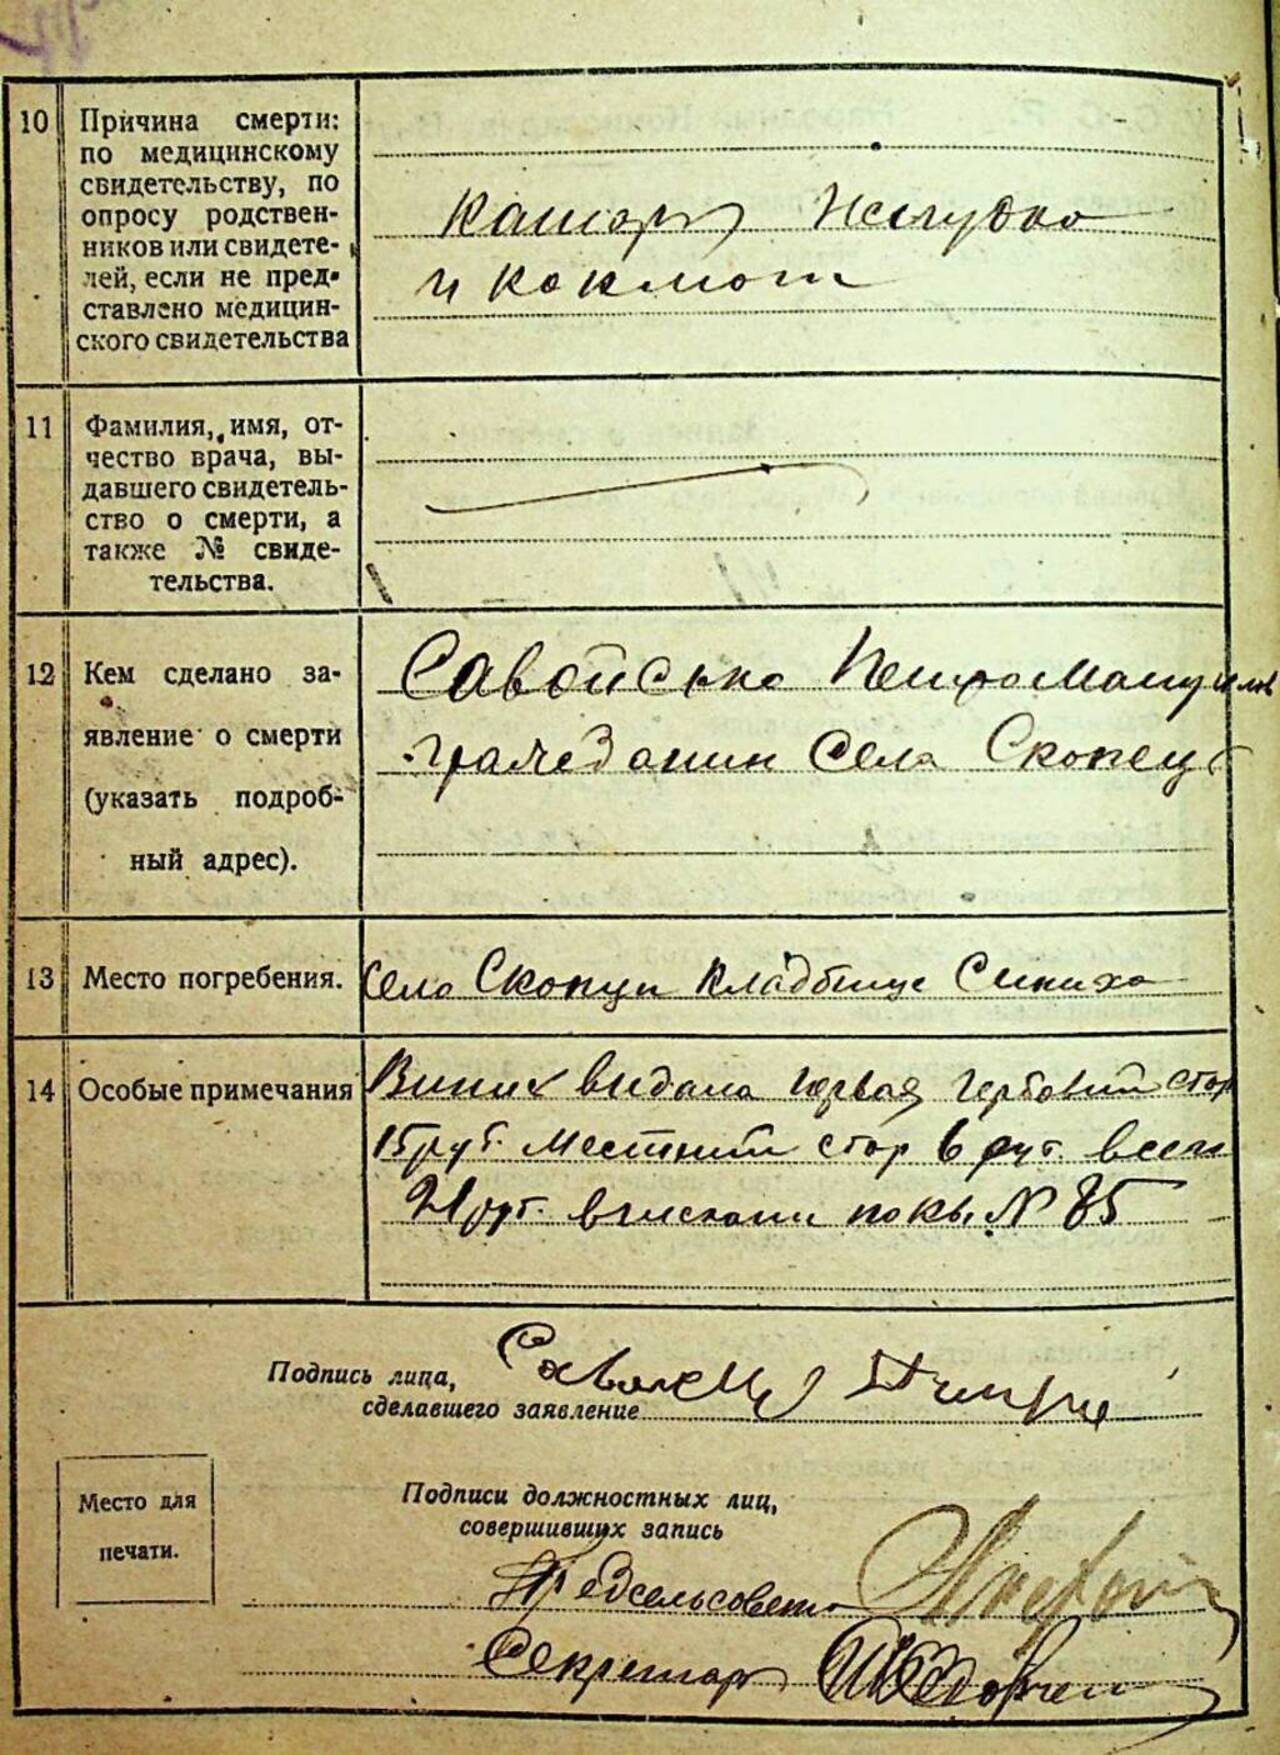 10 Причина смерти:
по медицинскому
свидетельству, по
опросу родствен-
ников или свидете-
лей, если не пред-
ставлено медицин-
ского свидетельства
Катар Желудка
и кокмот
11 Фамилия, имя, от-
чество врача, вы-
давшего свидетель-
ство о смерти, а
также № свиде-
тельства.
12 Кем сделано за-
явление о смерти
(указать подроб-
ный адрес).
Савойсько Петро
гражданин села Скопец
13 Место погребения.
село Скопци кладбище Синиха
14 Особые примечания
видана первая гербовий
15 руб. местний 6 руб.
21 руб. № 85
Подпись лица,
сделавшего заявление
Место для
печати.
Подписи должностных лиц,
совершивших запись
Предсельсовета
Секретар